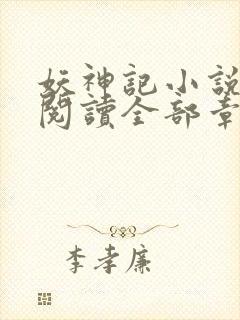 妖神記小說
閱讀全部章
李孝廉